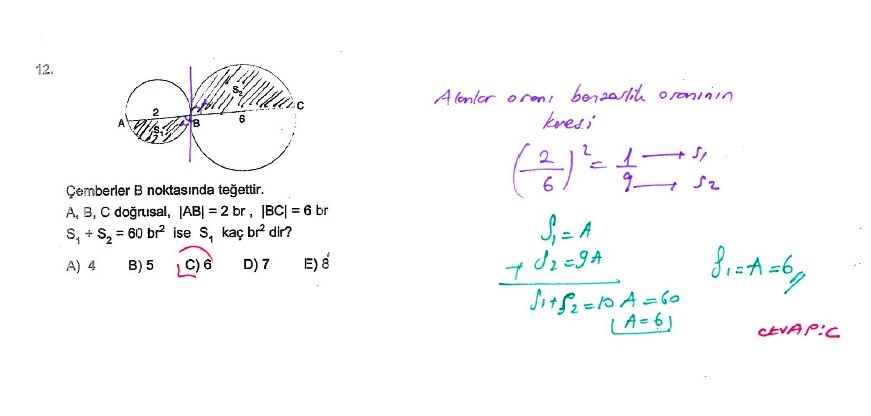 12.
S₂
2
A
B
6
C
S₁
Çemberler B noktasında teğettir.
A, B, C doğrusal, |AB| = 2 br , |BC| = 6 br
S₁ + S₂ = 60 br² ise S₁ kaç br² dir?
A) 4 B) 5 C) 6 D) 7 E) 8
Alanlar oranı benzerlik oranının
karesi
(2/6)² = 1/9 → S₁ → S₂
S₁ = A
+ S₂ = 9A
S₁ + S₂ = 10 A = 60
A = 6
S₁ = A = 6
CEVAP: C